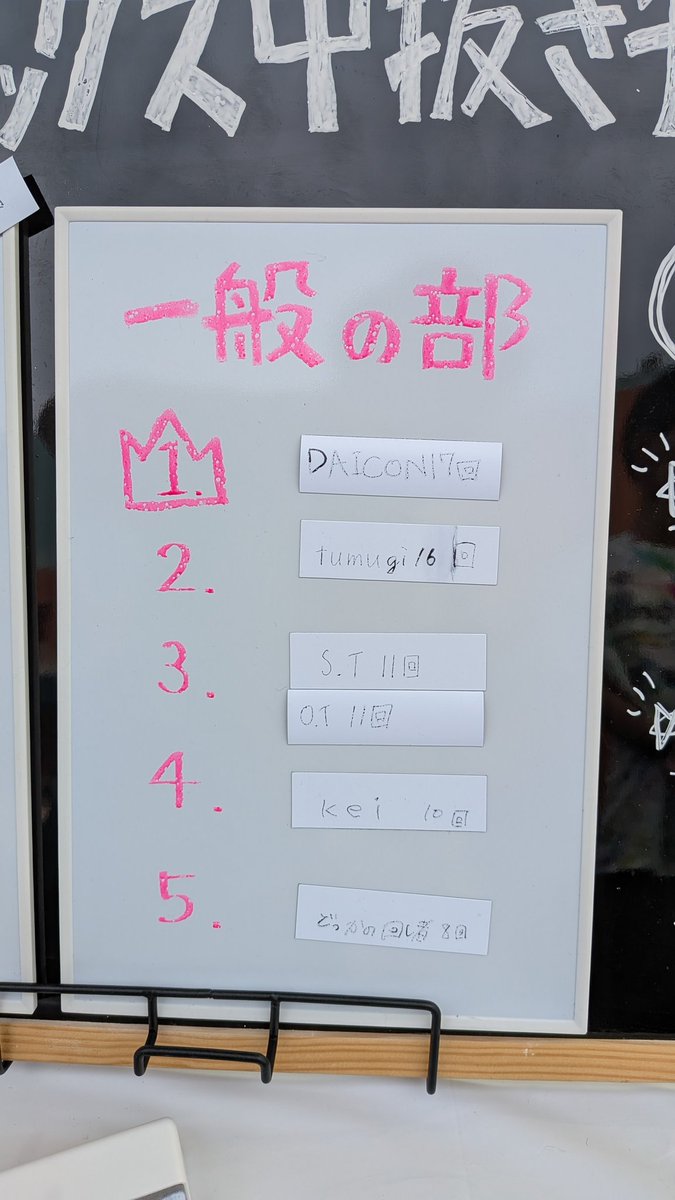 ックス中抜き
一般の部
1. DAICON17回
2. tumugi 16回
3. S.T 11回
O.T 11回
4. kei 10回
5. どっかの回し者 8回